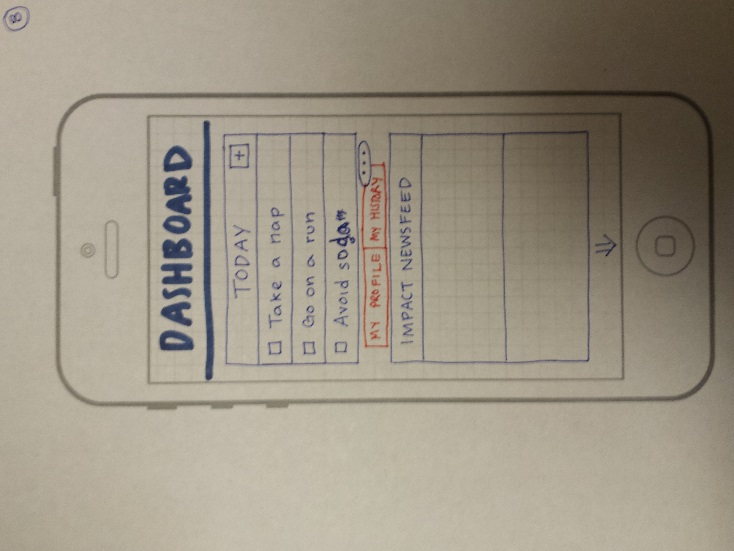 8
DASHBOARD
TODAY +
Take a nap
Go on a run
Avoid soda
...
MY PROFILE MY HISTORY
IMPACT NEWSFEED